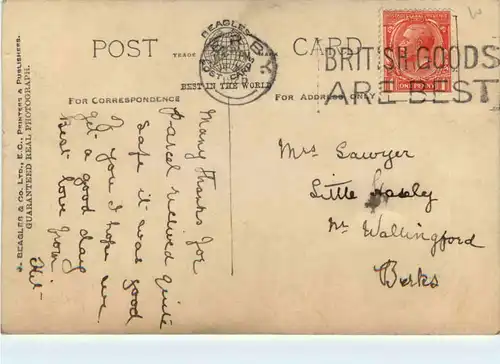 POST CARD
TRADE
BEAGLES
BEST IN THE WORLD
FOR CORRESPONDENCE
FOR ADDRESS ONLY
BRITISH GOODS
ARE BEST
J. BEAGLES & CO. LTD., E.C., PRINTERS & PUBLISHERS.
GUARANTEED REAL PHOTOGRAPH.
Many Thanks for
parcel received quite
safe it was good
of you I hope we
get a good day
Best love from
Mrs Sawyer
Little
Nr Wallingford
Berks